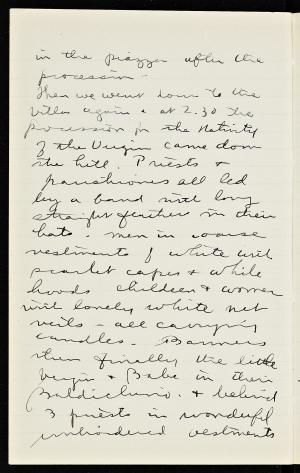 in the piazza after the
procession -
Then we went down to the
villa again & at 2.30 the
procession for the Nativity
of the Virgin came down
the hill. Priests &
parishioners all led
by a band with long
straight feathers in their
hats - men in coarse
vestments of white with
scarlet capes & white
hoods children & women
with lovely white net
veils - all carrying
candles. Banners
then finally the little
Virgin & Babe in their
Baldichino. & behind
3 priests in wonderful
embroidered vestments